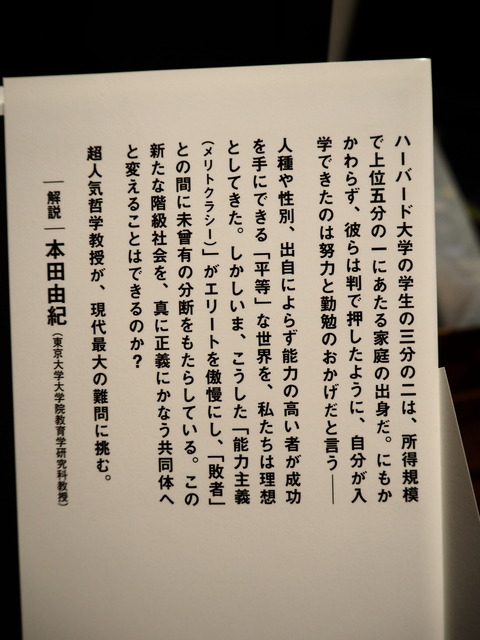 ハーバード大学の学生の三分の二は、所得規模
で上位五分の一にあたる家庭の出身だ。にもか
かわらず、彼らは判で押したように、自分が入
学できたのは努力と勤勉のおかげだと言う――
人種や性別、出自によらず能力の高い者が成功
を手にできる「平等」な世界を、私たちは理想
としてきた。しかしいま、こうした「能力主義
(メリトクラシー)」がエリートを傲慢にし、「敗者」
との間に未曾有の分断をもたらしている。この
新たな階級社会を、真に正義にかなう共同体へ
と変えることはできるのか?
超人気哲学教授が、現代最大の難問に挑む。
―解説―本田由紀(東京大学大学院教育学研究科教授)